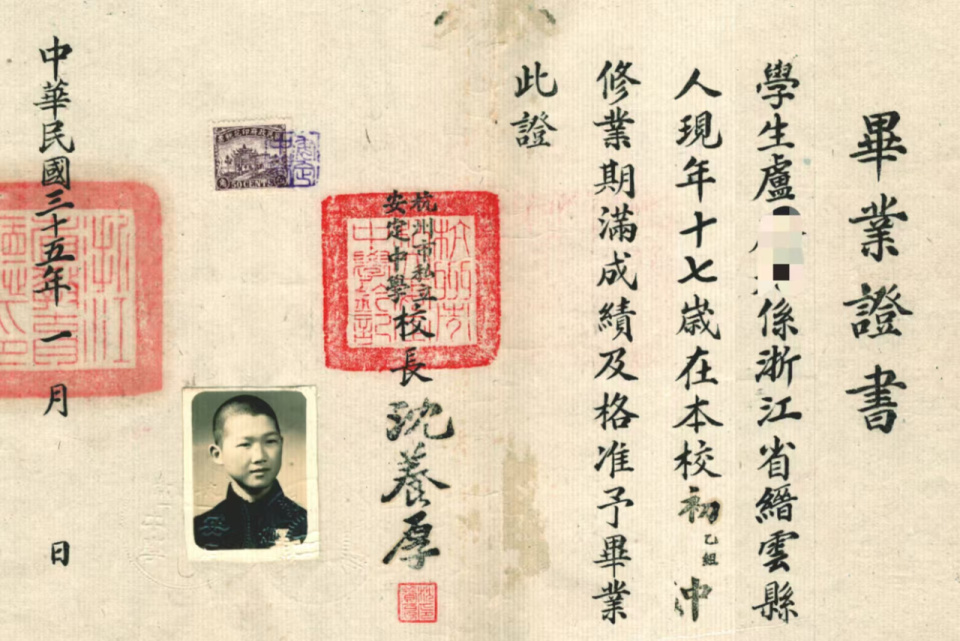 畢業證書
學生盧
係浙江省縉雲縣
人現年十七歲在本校初中
乙組
修業期滿成績及格准予畢業
此證
杭州市私立
安定中學
校長沈養厚
50 CENTS
中華民國三十五年一月 日